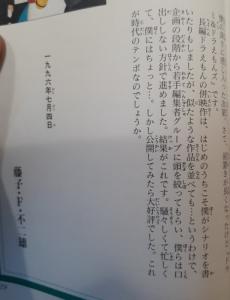 「ドラえもんズ」です。
長編ドラえもんの併映作は、はじめのうちこそ僕がシナリオを書
いたりもしましたが、似たような作品を並べても…というわけで、
企画の段階から若手編集者グループに頭を絞ってもらい、僕らは口
出ししない方針で進めました。結果がこれです。騒々しくて忙しく
て、僕にはちょっと…。しかし公開してみたら大好評でした。これ
が時代のテンポなのでしょうか。
一九九六年七月四日
藤子・F・不二雄